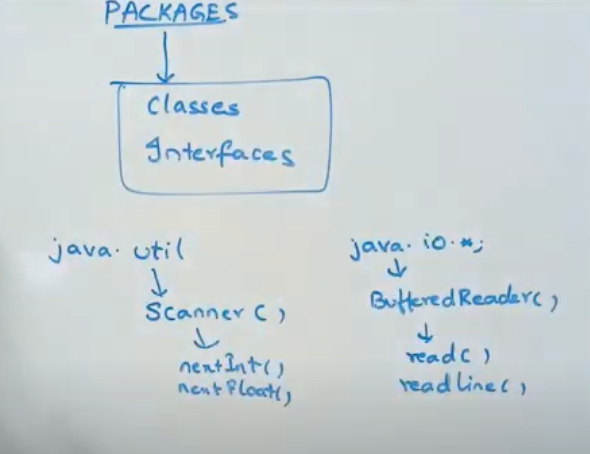 PACKAGES
Classes
Interfaces
java. util
Scanner( )
nextInt( )
nextFloat( )
java. io. *;
BufferedReader( )
read( )
readLine( )